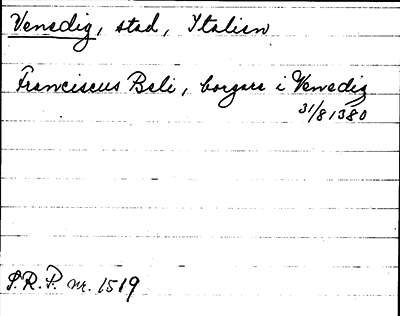 Venedig, stad, Italien
Franciscus Beli, borgare i Venedig
31/8 1380
S.R.P. nr. 1519